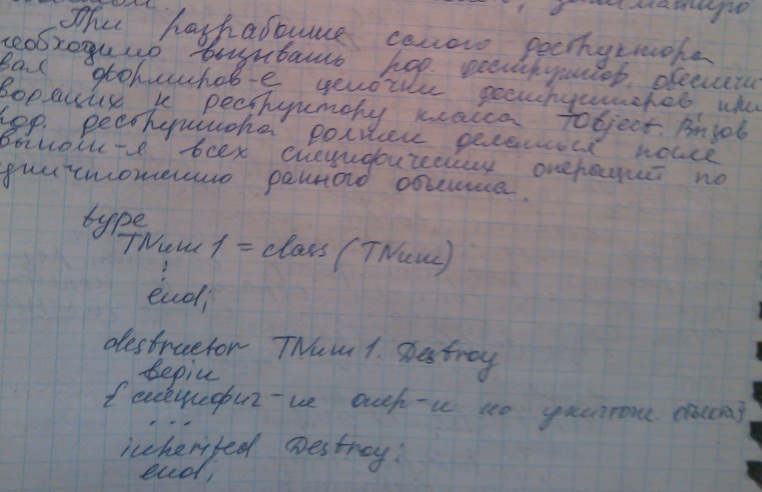 При разработке самого деструктора
необходимо вызывать род деструктор, обеспечи
вая формиров-е цепочки деструкторов при
водящих к деструктору класса TObject. Вызов
род. деструктора должен делаться после
выполн-я всех специфических операций по
уничтожению данного объекта.
type
TNum1 = class (TNum)
⋮
end;
destructor TNum1. Destroy
begin
{ специфич-ие опер-и по уничтож. объекта}
...
inherited Destroy;
end;